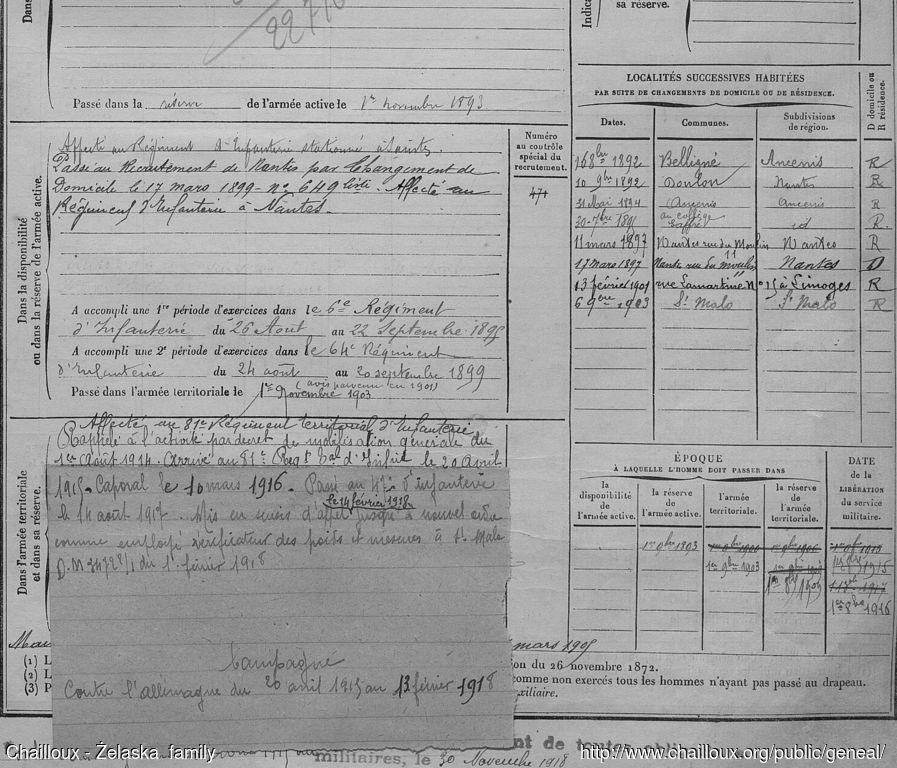 Dans
22716
Passé dans la réserve de l'armée active le 1er novembre 1893
Dans la disponibilité
ou dans la réserve de l'armée active.
Affecté au Régiment d'Infanterie stationné à
Passé au Recrutement de Nantes par Changement de
Domicile le 17 mars 1899 - n° 649 liste. Affecté au
Régiment d'Infanterie à Nantes.
A accompli une 1re période d'exercices dans le 6e Régiment
d'Infanterie du 26 Août au 22 Septembre 1895
A accompli une 2e période d'exercices dans le 64e Régiment
d'Infanterie du 24 août au 20 septembre 1899
(avis parvenu en 1901)
Passé dans l'armée territoriale le 1er Novembre 1903
Numéro
au contrôle
spécial du
recrutement.
471
Dans l'armée territoriale
et dans sa réserve.
Affecté au 81e Régiment territorial d'Infanterie
Rappelé à l'activité par décret de mobilisation générale du
1er Août 1914. Arrivé au 81e Regt tal d'Infie le 20 Avril
1915 - Caporal le 10 mars 1916 - Passé au 47e d'infanterie
le 14 février 1918
le 14 août 1917. Mis en sursis d'appel jusqu'à nouvel ordre
comme employé vérificateur des poids et mesures à St Malo
D.M 3472 8/1 du 1er février 1918
Campagne
Contre l'allemagne du 20 avril 1915 au 13 février 1918
mars 1905
(1) L
(2) L
(3) P
ion du 26 novembre 1872.
comme non exercés tous les hommes n'ayant pas passé au drapeau.
xiliaire.
militaires, le 30 Novembre 1918
Indic
sa réserve.
LOCALITÉS SUCCESSIVES HABITÉES
PAR SUITE DE CHANGEMENTS DE DOMICILE OU DE RÉSIDENCE.
Dates. Communes. Subdivisions de région. D domicile ou R résidence.
16 8bre 1892 Belligné Ancenis R
10 9bre 1892 Doulon Nantes R
31 Mai 1894 Ancenis Ancenis R
au collège
30 7bre 1895 Saffré id R.
11 mars 1897 Nantes rue du Moulin Nantes R
11
17 mars 1897 Nantes rue du Moulin Nantes D
13 février 1901 rue Lamartine N° 15 à Limoges R
6 9bre 1903 St Malo St Malo R
ÉPOQUE
À LAQUELLE L'HOMME DOIT PASSER DANS
la disponibilité de l'armée active.
la réserve de l'armée active.
l'armée territoriale.
la réserve de l'armée territoriale.
DATE
de la
LIBÉRATION
du service
militaire.
1er 9bre 1893
1er 9bre 1903
1915
1917
1916
Chailloux - Żelaska family
http://www.chailloux.org/public/geneal/